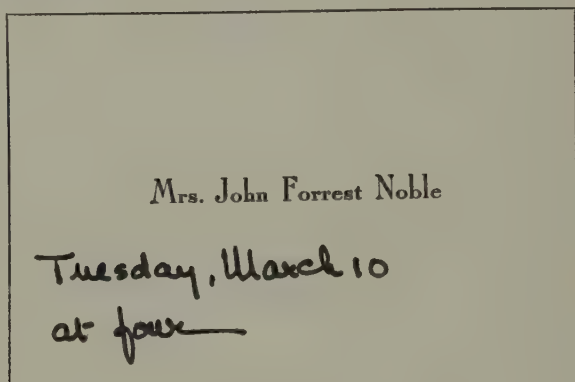 Mrs. John Forrest Noble
Tuesday, March 10
at four